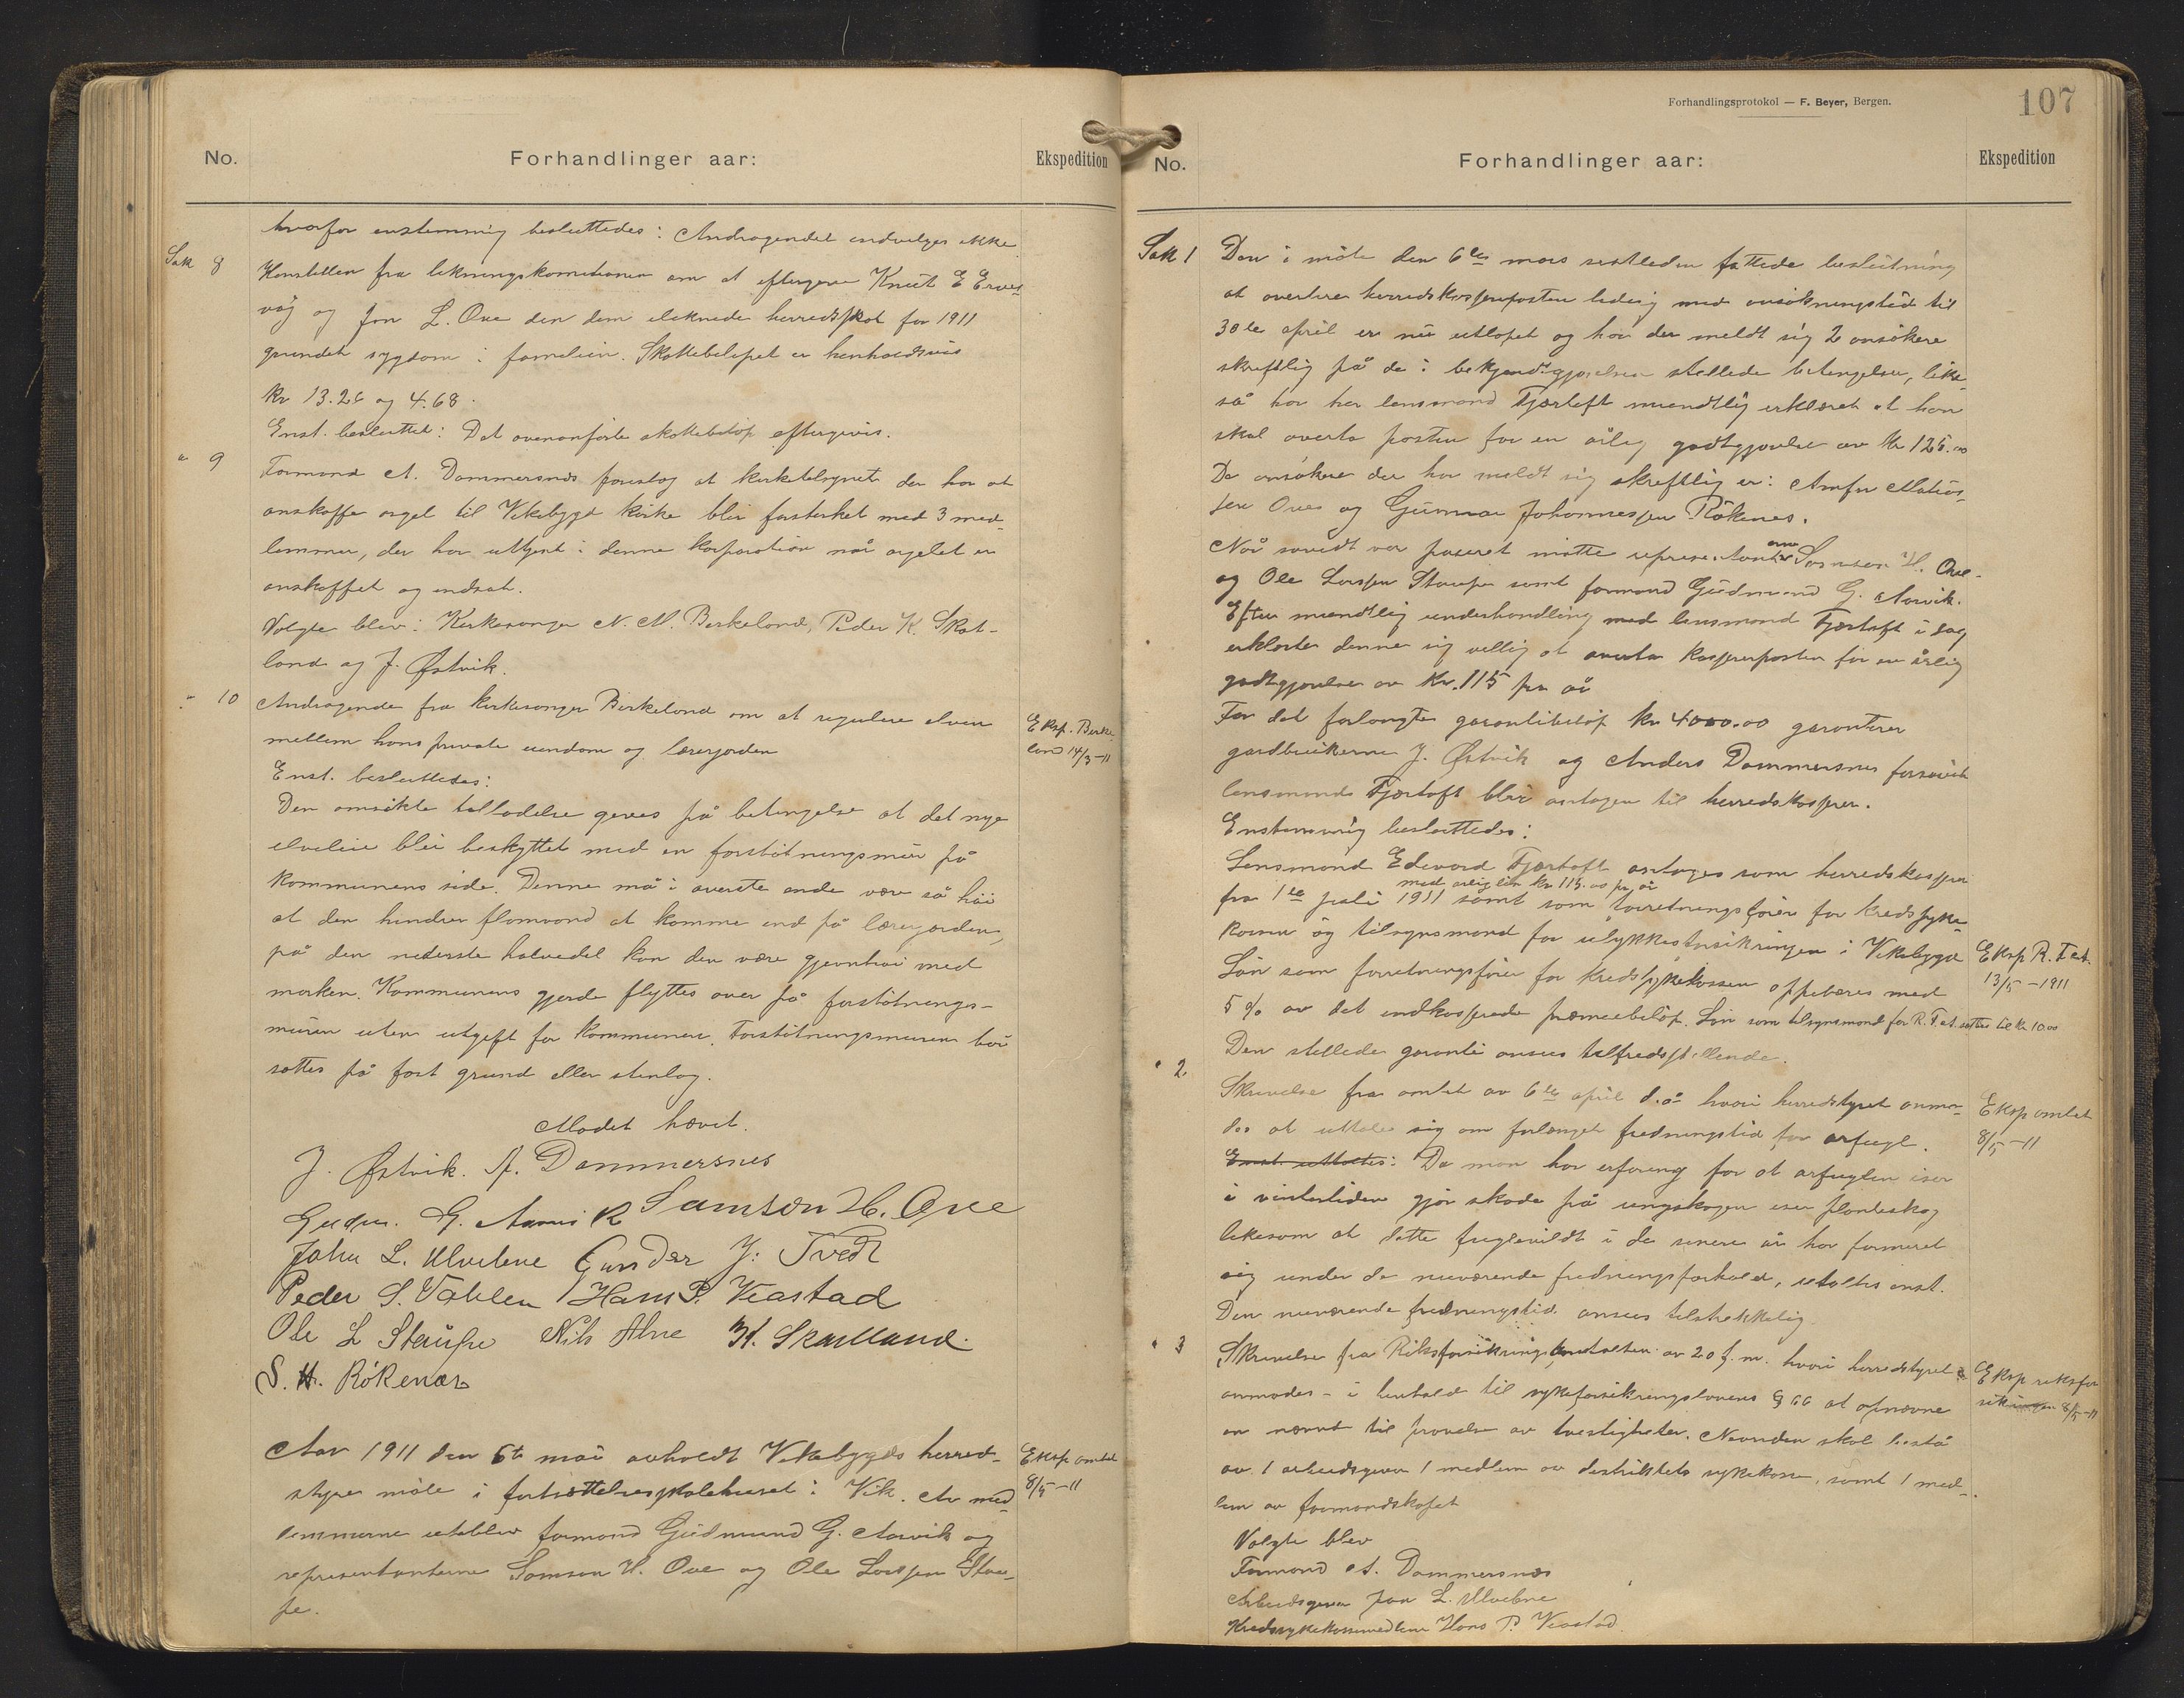 No.
Forhandlinger aar:
Ekspedition
hvorfor enstemmig besluttedes: Andragendet indvilges ikke
Sak 8
Henstillen fra likningskomitionen om at eftergive Knut E Erves-
våg og Jon L. Ove den dem ileknede herredsskat for 1911
grundet sygdom i familien. Skattebeløpet er henholdsvis
kr 13.26 og 4.68.
Enst. besluttet: Det ovenanførte skattebeløp eftergives.
" 9
Formand A. Dommersnes foreslog at kirketilsynet der har at
anskaffe orgel til Vikebygd kirke blir forsterket med 3 med-
lemmer, der har uttjent i denne korporation når orgelet er
anskaffet og indsat.
Valgte blev: Kirkesanger N. M. Birkeland, Peder K. Skat-
land og J. Østvik.
" 10
Andragende fra kirkesanger Birkeland om at regulere elven
mellem hans private eiendom og lærerjorden
Eksp. Birke-
land 14/3-11
Enst. besluttedes:
Den omsøkte tilladelse gives på betingelse at det nye
elveleie blir beskyttet med en forstøtningsmur på
kommunens side. Denne må i øverste ende være så høi
at den hindrer flomvand at komme ind på lærerjorden,
på den nederste halvedel kan den være gjevnhøi med
marken. Kommunens gjerde flyttes over på forstøtnings-
muren uten utgift for kommunen. Forstøtningsmuren bør
sættes på fast grund eller stenlag.
Mødet hævet.
J. Østvik. A. Dommersnes
Gudm. G. Aarvik Samson H. Ove
John L. Ulvebne Gunder J. Tvedt
Peder S. Vahlen Hans P. Veastad
Ole L Staupe Nils Alne H. Skartland.
S. H. Rökenes
Aar 1911 den 6te mai avholdt Vikebygds herred-
styre møte i fortsættelsesskolehuset i Vik. Av med-
Eksp amtet
8/5-11
lemmerne uteblev formand Gudmund G. Aarvik og
representanterne Samson H. Ove og Ole Larssen Stau-
pe.
Forhandlingsprotokol — F. Beyer, Bergen.
107
No.
Forhandlinger aar:
Ekspedition
Sak 1
Den i møte den 6te mars sistleden fattede beslutning
at avertere herredskassererposten ledig med ansøkningstid til
30te april er nu utløpet og har der meldt sig 2 ansøkere
skriftlig på de i bekjendtgjørelsen stillede betingelser, like-
så har her lensmand Fjærtoft mundtlig erklæret at han
skal overta posten for en årlig godtgjørelse av kr 125.00
De ansøkere der har meldt sig skriftlig er: Amfin Matias-
sen Ones og Gunnar Johannessen Rökenes.
Når såvidt var passeret møtte representanterne Samson H. Ove
og Ole Larssen Staupe samt formand Gudmund G. Aarvik.
Efter mundtlig underhandling med lensmand Fjærtoft i dag
erklærte denne sig villig at overta kassererposten for en årlig
godtgjørelse av Kr. 115 pr år
For det forlangte garantibeløp kr 4000.00 garanterer
gardbrukerne J. Østvik og Anders Dommersnes forsåvidt
lensmand Fjærtoft blir antagen til herredskasserer.
Enstemmig besluttedes:
Lensmand Edvard Fjærtoft antages som herredskasserer
med årlig løn kr 115.00 pr år
fra 1ste juli 1911 samt som forretningsfører for kredssyke-
kassen og tilsynsmand for ulykkesforsikringen i Vikebygd
Eksp R. F. A.
13/5-1911
Løn som forretningsfører for kredssykekassen oppebæres med
5 % av det indkasserede præmiebeløp. Løn som tilsynsmand for R. F. A. sættes til kr 10.00
Den stillede garanti ansees tilfredsstillende.
" 2
Skrivelse fra amtet av 6te april d.å hvori herredstyret anmo-
des at uttale sig om forlænget fredningstid for århugl.
Eksp amtet
8/5-11
Enst. uttaltes: Da man har erfaring for at arfuglen især
i vintertiden gjør skade på ungskogen især planteskog
likesom at dette fuglevildt i de senere år har formeret
sig under de nuværende fredningsforhold, uttaltes enst.
Den nuværende fredningstid ansees tilstrækkelig.
" 3
Skrivelse fra Riksforsikringsanstalten av 20 f. m. hvori herredstyret
anmodes - i henhold til sykeforsikringslovens § 66 at opnævne
Eksp riksfor
sikringen 8/5-11
en nævnd til prøvelse av tvistigheter. Nævnden skal bestå
av 1 arbeidsgiver 1 medlem av distriktets sykekasse, samt 1 med-
lem av formandskapet
Valgte blev
Formand A. Dommersnes
Arbeidsgiver Jon L. Ulvebne
Kredssykekassemedlem Hans P. Veastad.